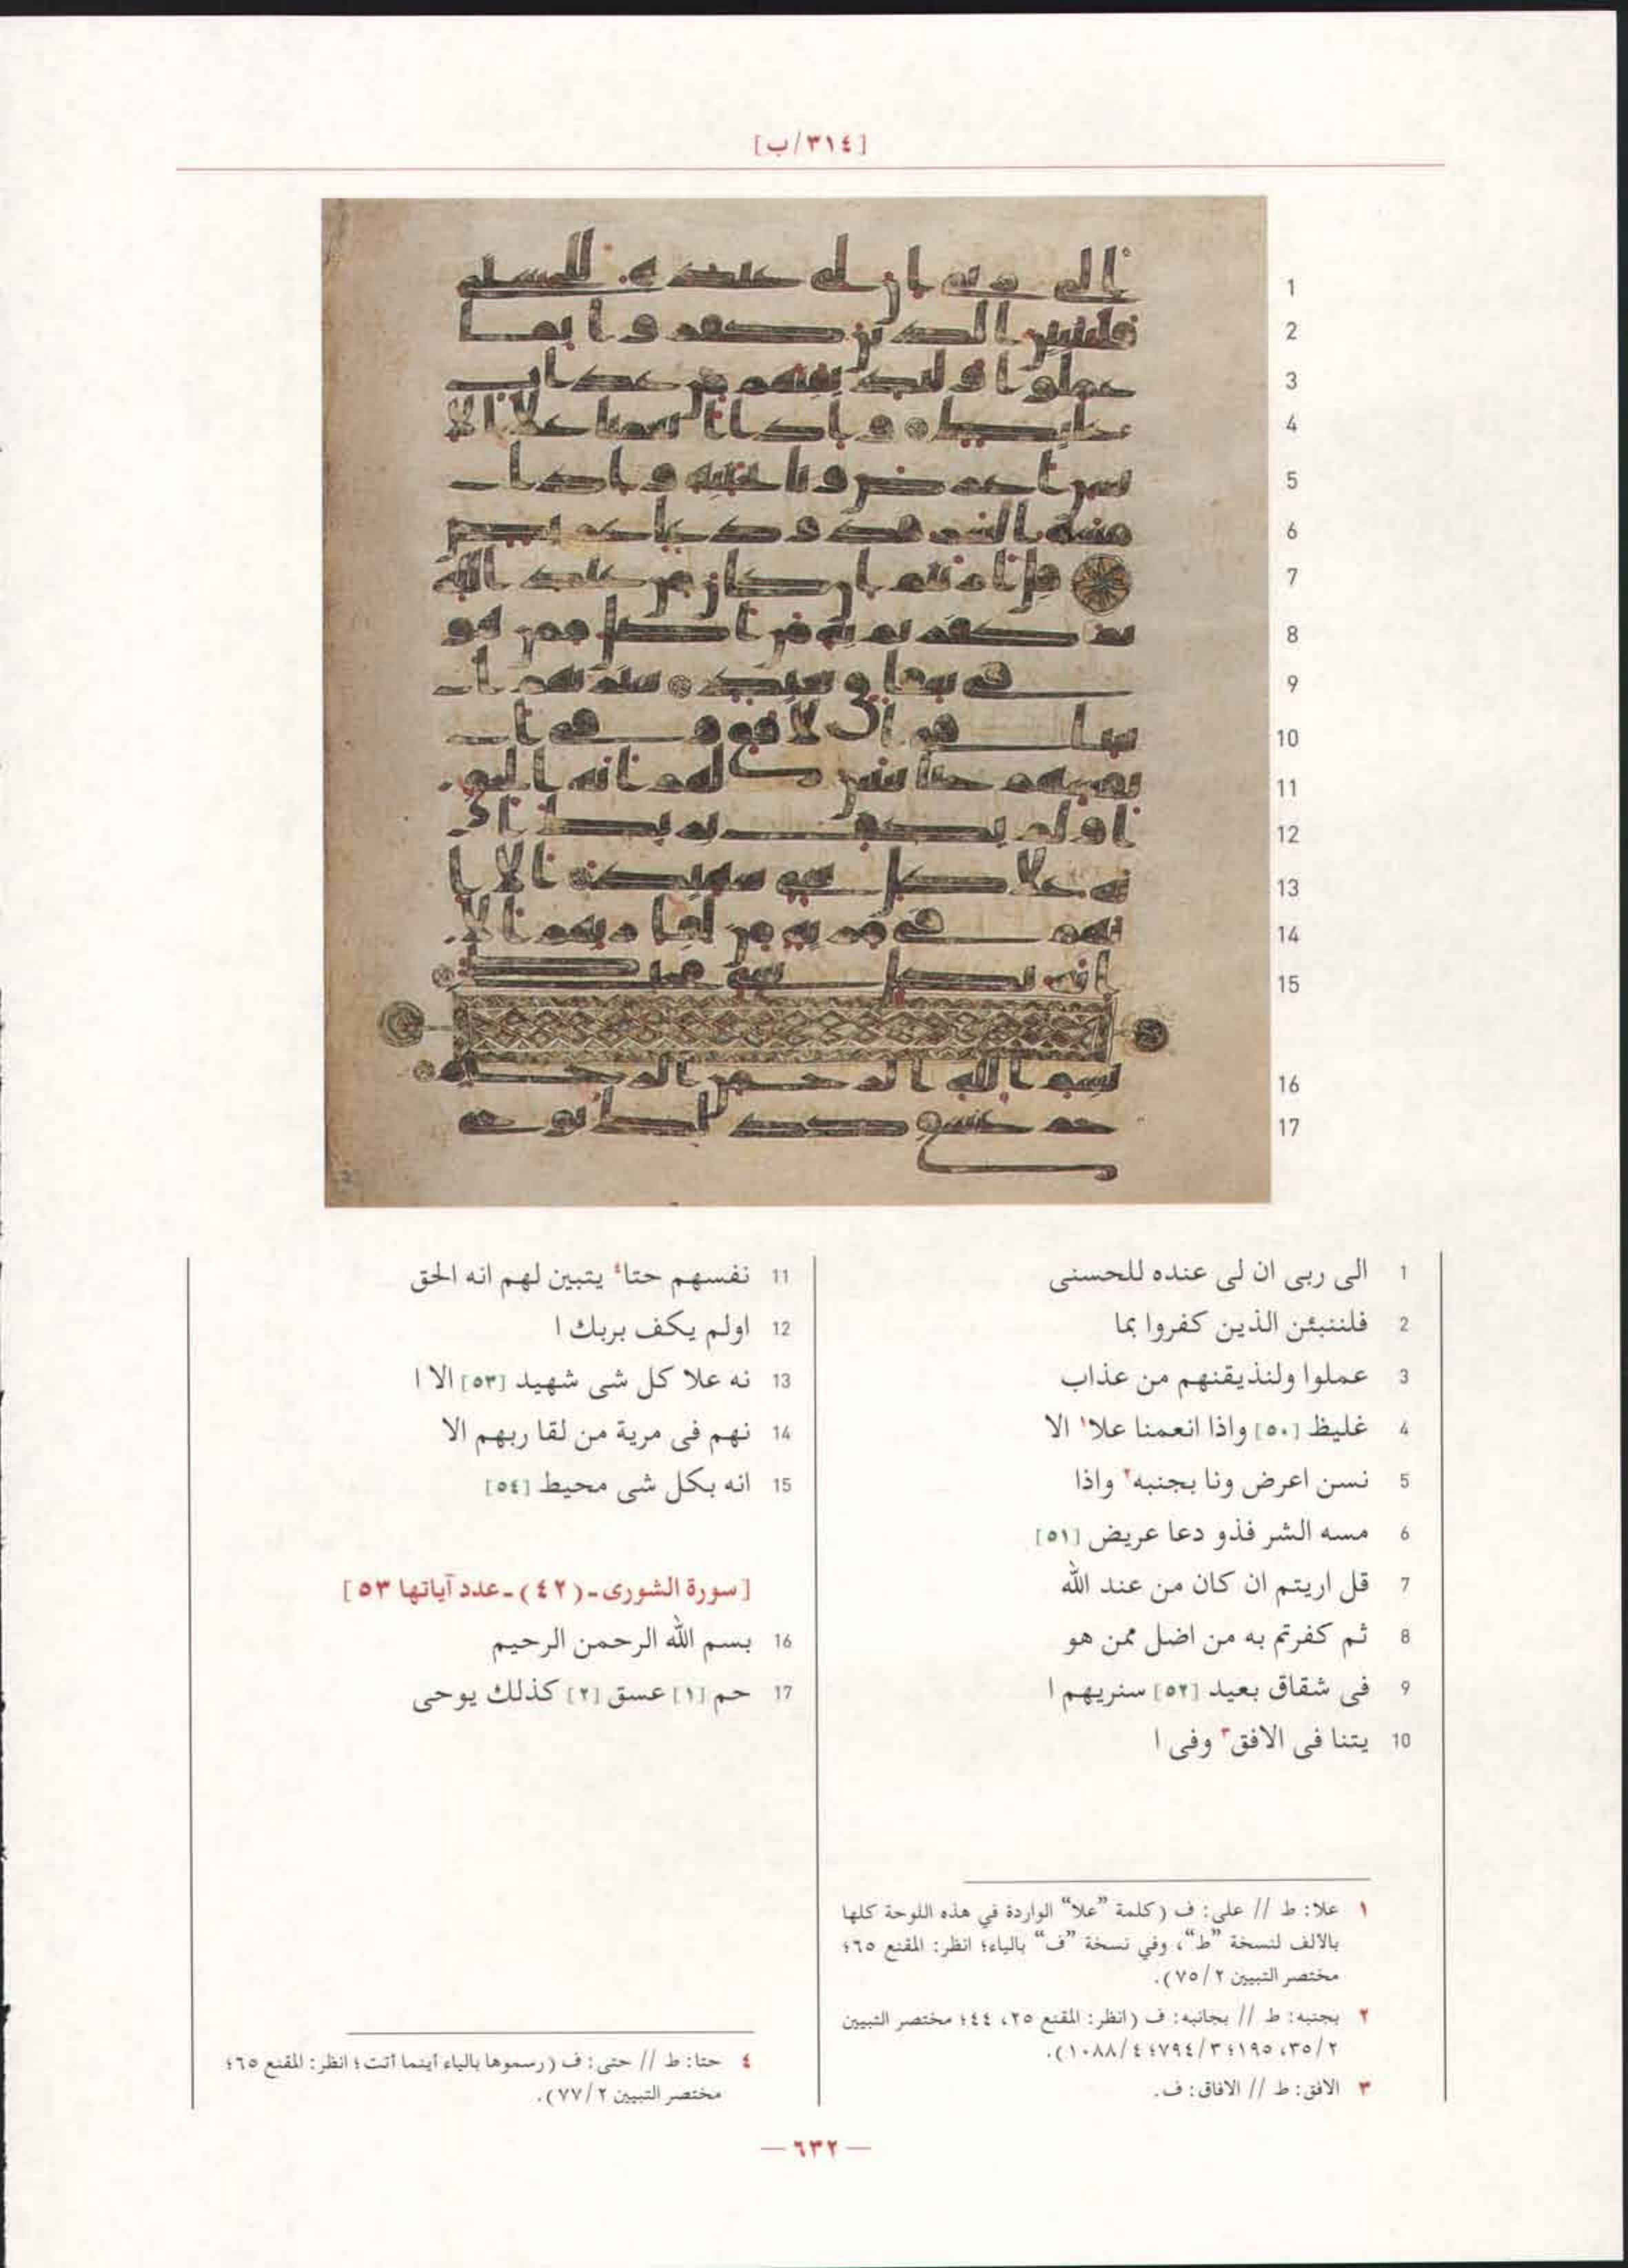 [٣١٤/ب]
1 الى ربى ان لى عنده للحسنى
2 فلننبئن الذين كفروا بما
3 عملوا ولنذيقنهم من عذاب
4 غليظ [٥٠] واذا انعمنا علا١ الا
5 نسن اعرض ونا بجنبه٢ واذا
6 مسه الشر فذو دعا عريض [٥١]
7 قل اريتم ان كان من عند الله
8 ثم كفرتم به من اضل ممن هو
9 فى شقاق بعيد [٥٢] سنريهم ا
10 يتنا فى الافق٣ وفى ا
11 نفسهم حتا٤ يتبين لهم انه الحق
12 اولم يكف بربك ا
13 نه علا كل شى شهيد [٥٣] الا ا
14 نهم فى مرية من لقا ربهم الا
15 انه بكل شى محيط [٥٤]
[سورة الشورى ـ (٤٢) ـ عدد آياتها ٥٣]
16 بسم الله الرحمن الرحيم
17 حم [١] عسق [٢] كذلك يوحى
١ علا: ط // على: ف (كلمة ”علا“ الواردة في هذه اللوحة كلها
بالألف لنسخة ”ط“، وفي نسخة ”ف“ بالياء؛ انظر: المقنع ٦٥؛
مختصر التبيين ٢/٧٥).
٢ بجنبه: ط // بجانبه: ف (انظر: المقنع ٢٥، ٤٤؛ مختصر التبيين
٢/٣٥، ١٩٥؛ ٣/٧٩٤؛ ٤/١٠٨٨).
٣ الافق: ط // الافاق: ف.
٤ حتا: ط // حتى: ف (رسموها بالياء أينما أتت؛ انظر: المقنع ٦٥؛
مختصر التبيين ٢/٧٧).
— ٦٣٢ —